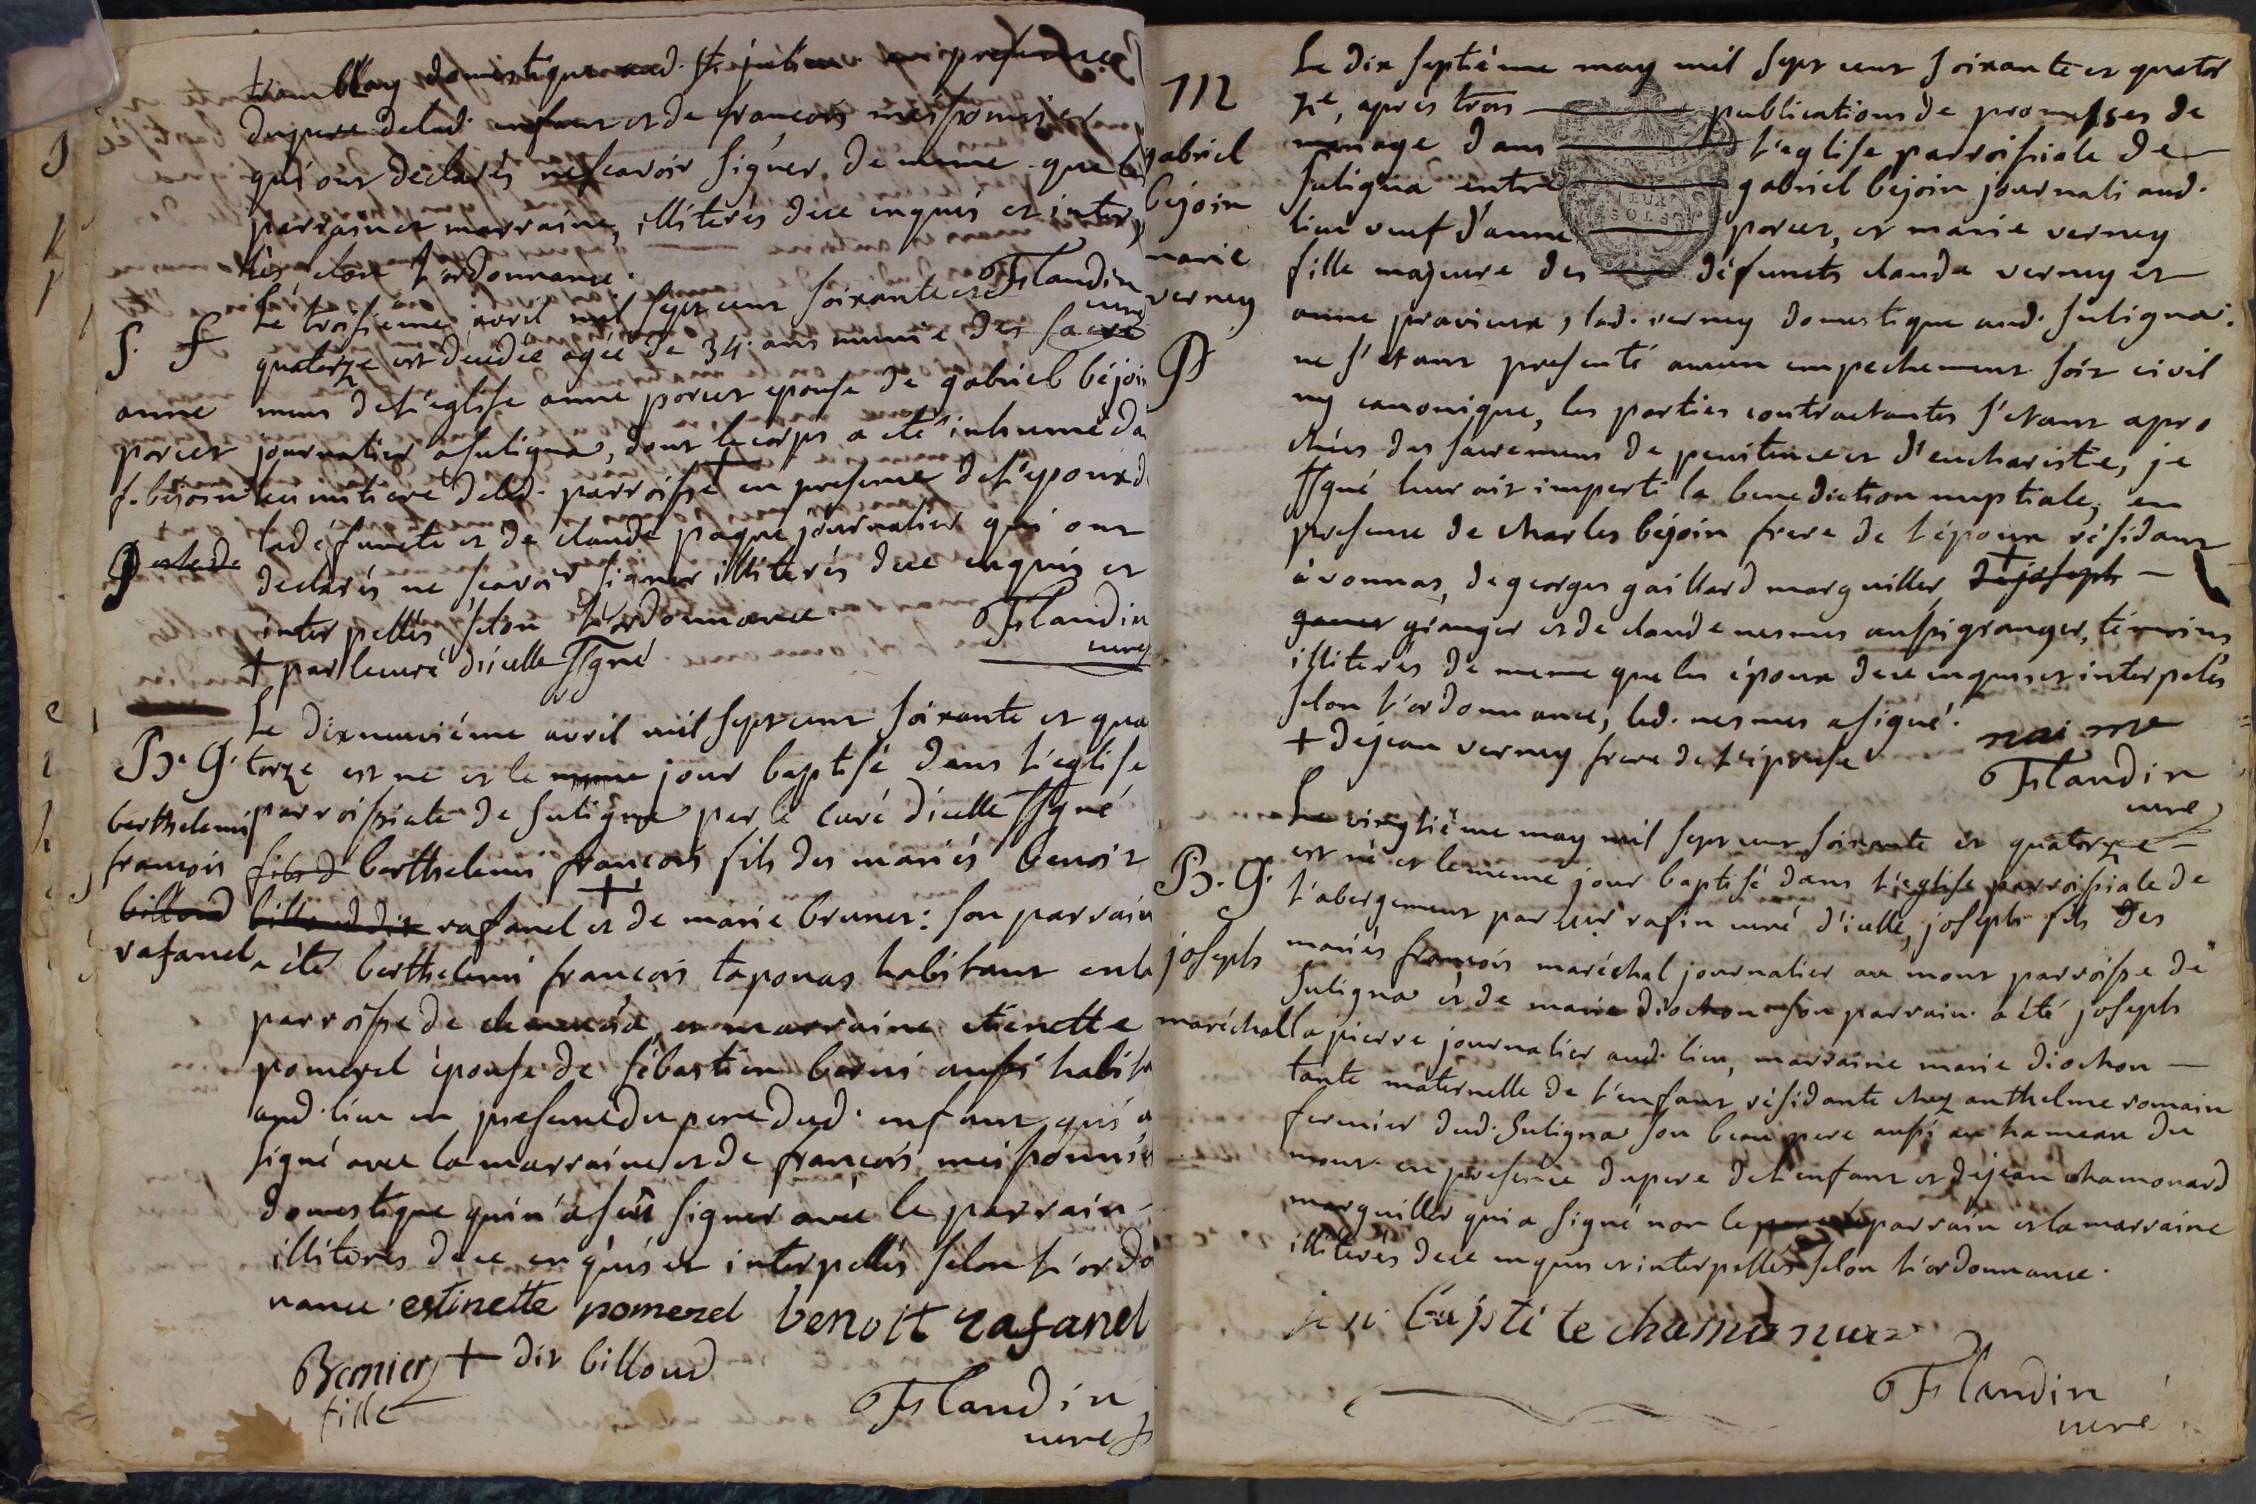 tramblay domestique aud. St. julien en presence
du pere delad. enfant et de francois mespomier
qui ont declarés ne scavoir signer de meme que les
parrain et marraine, illiterés de ce enquis et interp
lés selon l'ordonnance.
Flandin
curé
S. f
anne
porcet
f. bejoin
Le troisieme avril mil sept cent soixante et
quatorze est decedée agée de 34. ans munie des sacre
mens de l'eglise anne porcet epouse de gabriel béjoin
journalier a Suligna, dont le corps a eté inhumé da
le cimitiere delad. parroisse + en presence de l'epoux d
lad défuncte et de claude paque journalier qui ont
declarés ne scavoir signer illiterés de ce enquis et
interpellés selon l'ordonnance.
Flandin
curé
+ par le curé d'icelle ssgné
B. G.
berthelemi
francois
billoud
rafanel
Le dixneuviéme avril mil sept cent soixante et qua
torze est né et le meme jour baptisé dans l'eglise
parroissiale de Suligna par le curé d'icelle ssgné
fils d berthelemi francois fils des mariés benoit
billoud dit rafanel + et de marie brunet: son parrain
a été berthelemi francois taponas habitant en la
parroisse de et marraine etienette
pomerel épouse de sébastien berni aussi habita
aud. lieu en presence du pere dud. enfant qui a
signé avec la marraine et de francois mesponnier
domestique qui n'a sçu signer avec le parrain
illiterés de ce enquis et interpellés selon l'ordo
nance. estinette pomerel benoit rafanel
Bernier + dit billoud
fille
Flandin
curé
M
gabriel
bejoin
marie
verney
Le dix septiéme may mil sept cent soixante et quator
ze, aprés trois publications de promesses de
mariage dans l'eglise parroissiale de
Suligna entre gabriel bejoin journali aud.
lieu veuf d'anne porcet, et marie verney
fille majeure des défuncts claude verney et
anne pravieux, lad. verney domestique aud. Suligna.
ne s'etant presenté aucun empechement soit civil
ny canonique, les parties contractantes s'etant apro
chées des sacremens de penitence et d'euchariste, je
ssgné leur ait imparti la benediction nuptiale, en
presence de charles béjoin frere de l'époux résidant
à vonnas, de georges gaillard marguiller, + de joseph
granger et de claude nesmes aussi granger, témoins
illiterés de meme que les époux de ce enquis et interpelés
selon l'ordonnance, led. nesmes a signé.
+ de jean verney frere de l'épouse
naime
Flandin
curé
B. G.
joseph
maréchal
Le vingtiéme may mil sept cent soixante et quatorze
est né et le meme jour baptisé dans l'eglise parroissiale de
l'abergement par mr rafin curé d'icelle, joseph fils des
mariés francois maréchal journalier au mont parroisse de
Suligna et de marie diochon son parrain a été joseph
la pierre journalier aud. lieu, marraine marie diochon
tante maternelle de l'enfant résidante chez anthelme romain
fermier dud. Suligna son beau pere aussi au hameau du
mont en presence du pere de l'enfant et de jean chamonard
marguiller qui a signé non le parrain et la marraine
illiterés de ce enquis et interpellés selon l'ordonnance.
Flandin
curé